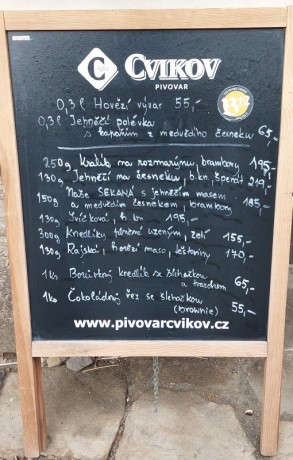 C
CVIKOV
PIVOVAR
0,3l Hovězí vývar 55,-
0,3l Jehněčí polévka
s kapáním z medvědího česneku 65,-
250g Králík na rozmarýnu, brambory 195,-
130g Jehněčí na česneku, b.kn, špenát 219,-
150g Naše SEKANÁ s jehněčím masem
a medvědím česnekem, brambory 185,-
130g Svíčková, h. kn 195,-
300g Knedlíky plněné uzeným, zelí 155,-
130g Rajská, hovězí maso, těstoviny 170,-
1ks Borůvkový knedlík se šlehačkou
a tvarohem 65,-
1ks Čokoládový řez se šlehačkou
(brownie) 55,-
www.pivovarcvikov.cz